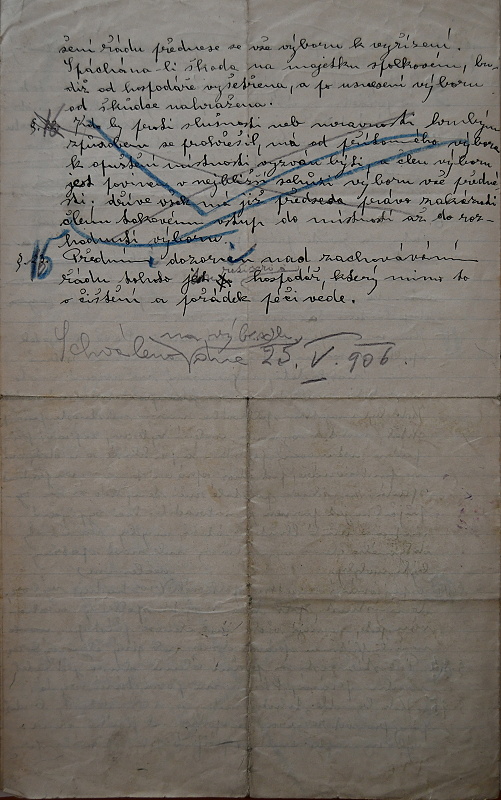 šení řádu přednese se vše výboru k vyřízení.
Spáchána-li škoda na majetku spolkovém, bu-
diž od hospodáře vyšetřena, a po usnesení výboru
od škůdce nahražena.
§. Kdo by proti slušnosti neb mravnosti hrubým
způsobem se prohřešil, má od přítomného výbora
k opuštění místnosti vyzván býti a člen výboru
jest povinen v nejbližší schůzi výboru vše předné-
sti. dříve však má již předseda právo zakázati
členu takovému vstup do místnosti až do roz-
hodnutí výboru.
§. 15 Předním dozorcem nad zachováváním
řádu tohoto jest hospodář, který mimo to
o čištění a pořádek péči vede.
na výb. schůzi
Schváleno dne 25. V. 906.